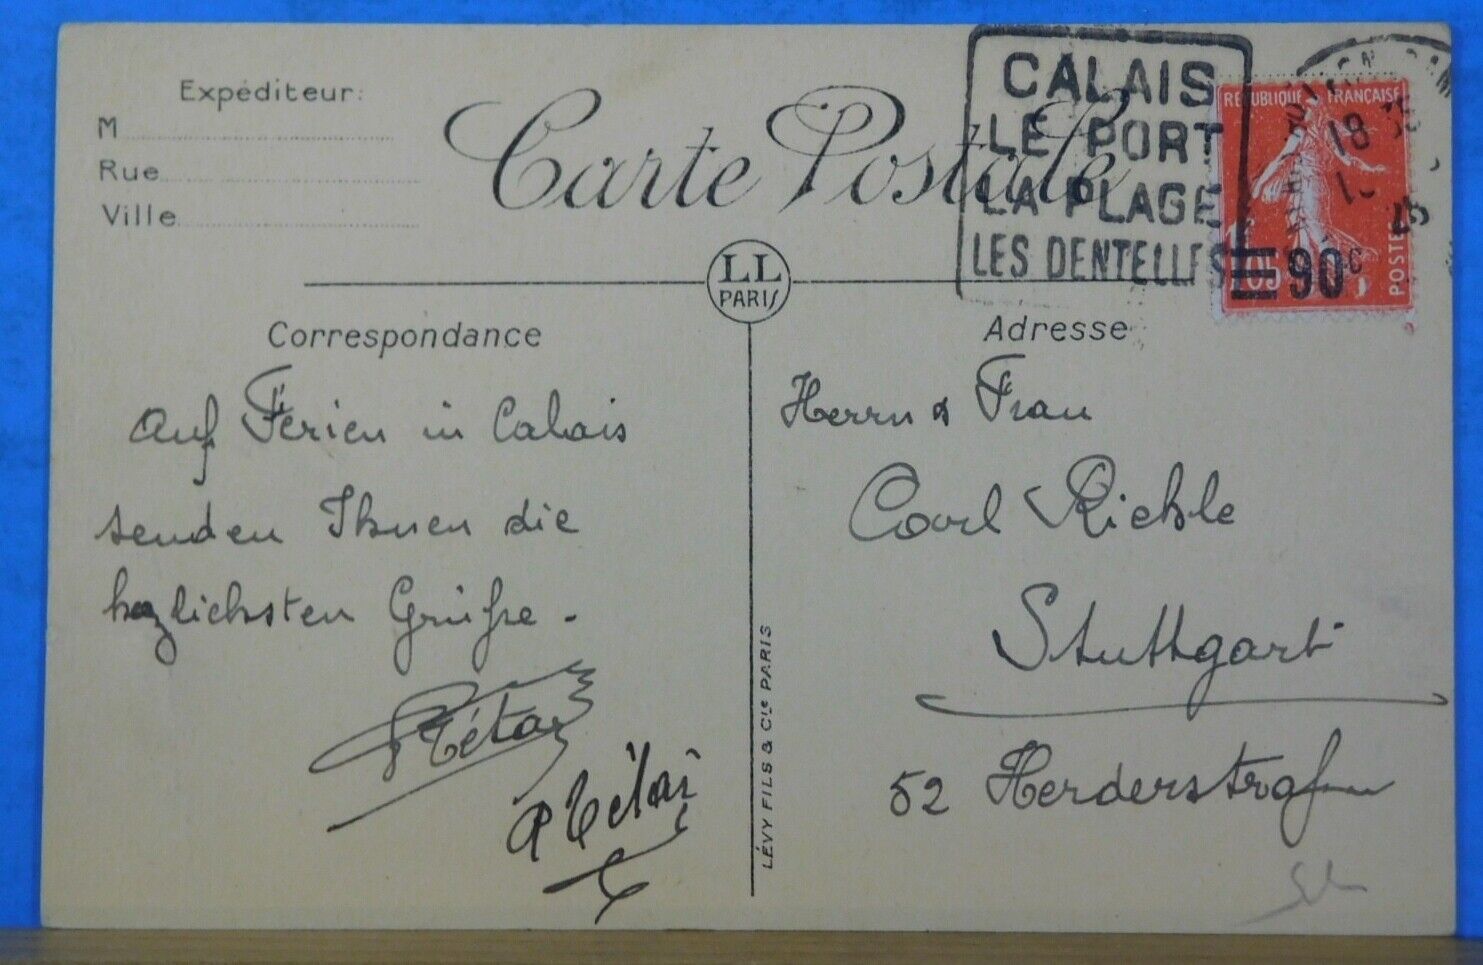 Expéditeur:
M
Rue
Ville
Carte Postale
CALAIS
LE PORT
LA PLAGE
LES DENTELLES
REPUBLIQUE FRANÇAISE
18
25
=90c
1F05
POSTES
LL
PARIS
Correspondance
Auf Ferien in Calais
senden Ihnen die
herzlichsten Grüße.
Adresse
Herrn & Frau
Carl Riehle
Stuttgart
52 Herderstraße
LÉVY FILS & Cie PARIS